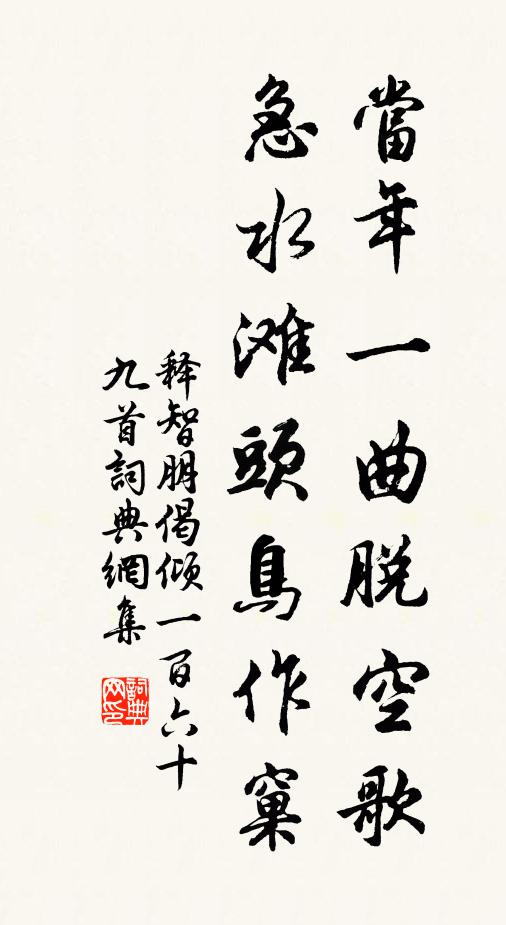 當年一曲脱空歌
急水滩頭鳥作窠
释智朋偈倾一百六十
九首詞典網集
詞典
网印